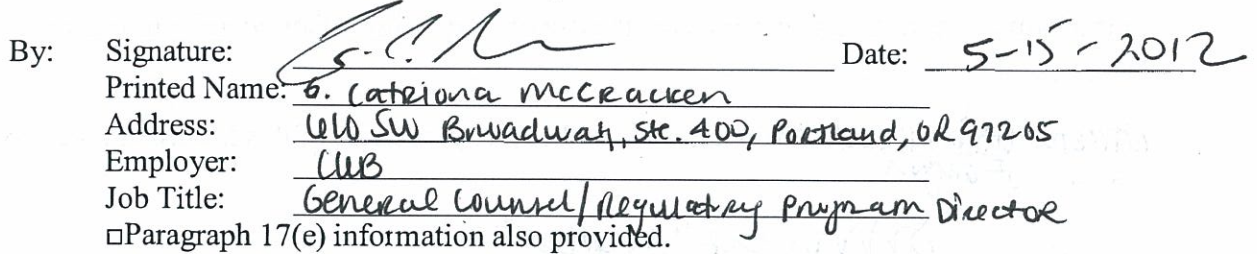 By: Signature: Date: 5-15-2012
Printed Name: G. Catriona McCracken
Address: 610 SW Broadway, Ste. 400, Portland, OR 97205
Employer: CUB
Job Title: General Counsel/Regulatory Program Director
□Paragraph 17(e) information also provided.